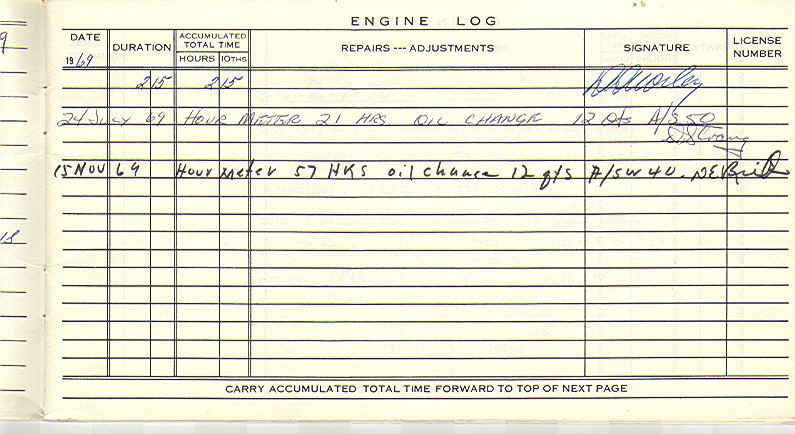 9
ENGINE LOG
DATE
1969
DURATION
ACCUMULATED
TOTAL TIME
HOURS
10THS
REPAIRS --- ADJUSTMENTS
SIGNATURE
LICENSE
NUMBER
2 15 2 15
24 JULY 69 HOUR METER 21 HRS OIL CHANGE 12 Qts A/S 50
15 NOV 69 Hour meter 57 HRS oil change 12 qts A/SW 40.
18
CARRY ACCUMULATED TOTAL TIME FORWARD TO TOP OF NEXT PAGE